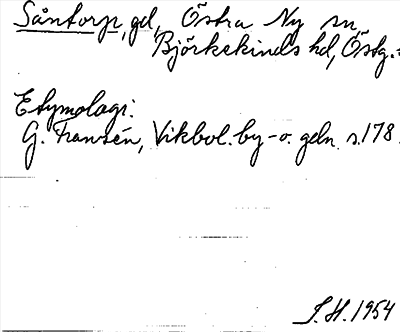 Såntorp, gd, Östra Ny sn,
Björkekinds hd, Östg.
Etymologi:
G. Franzén, Vikbol. by- o. gdn. s. 178.
S. H. 1954